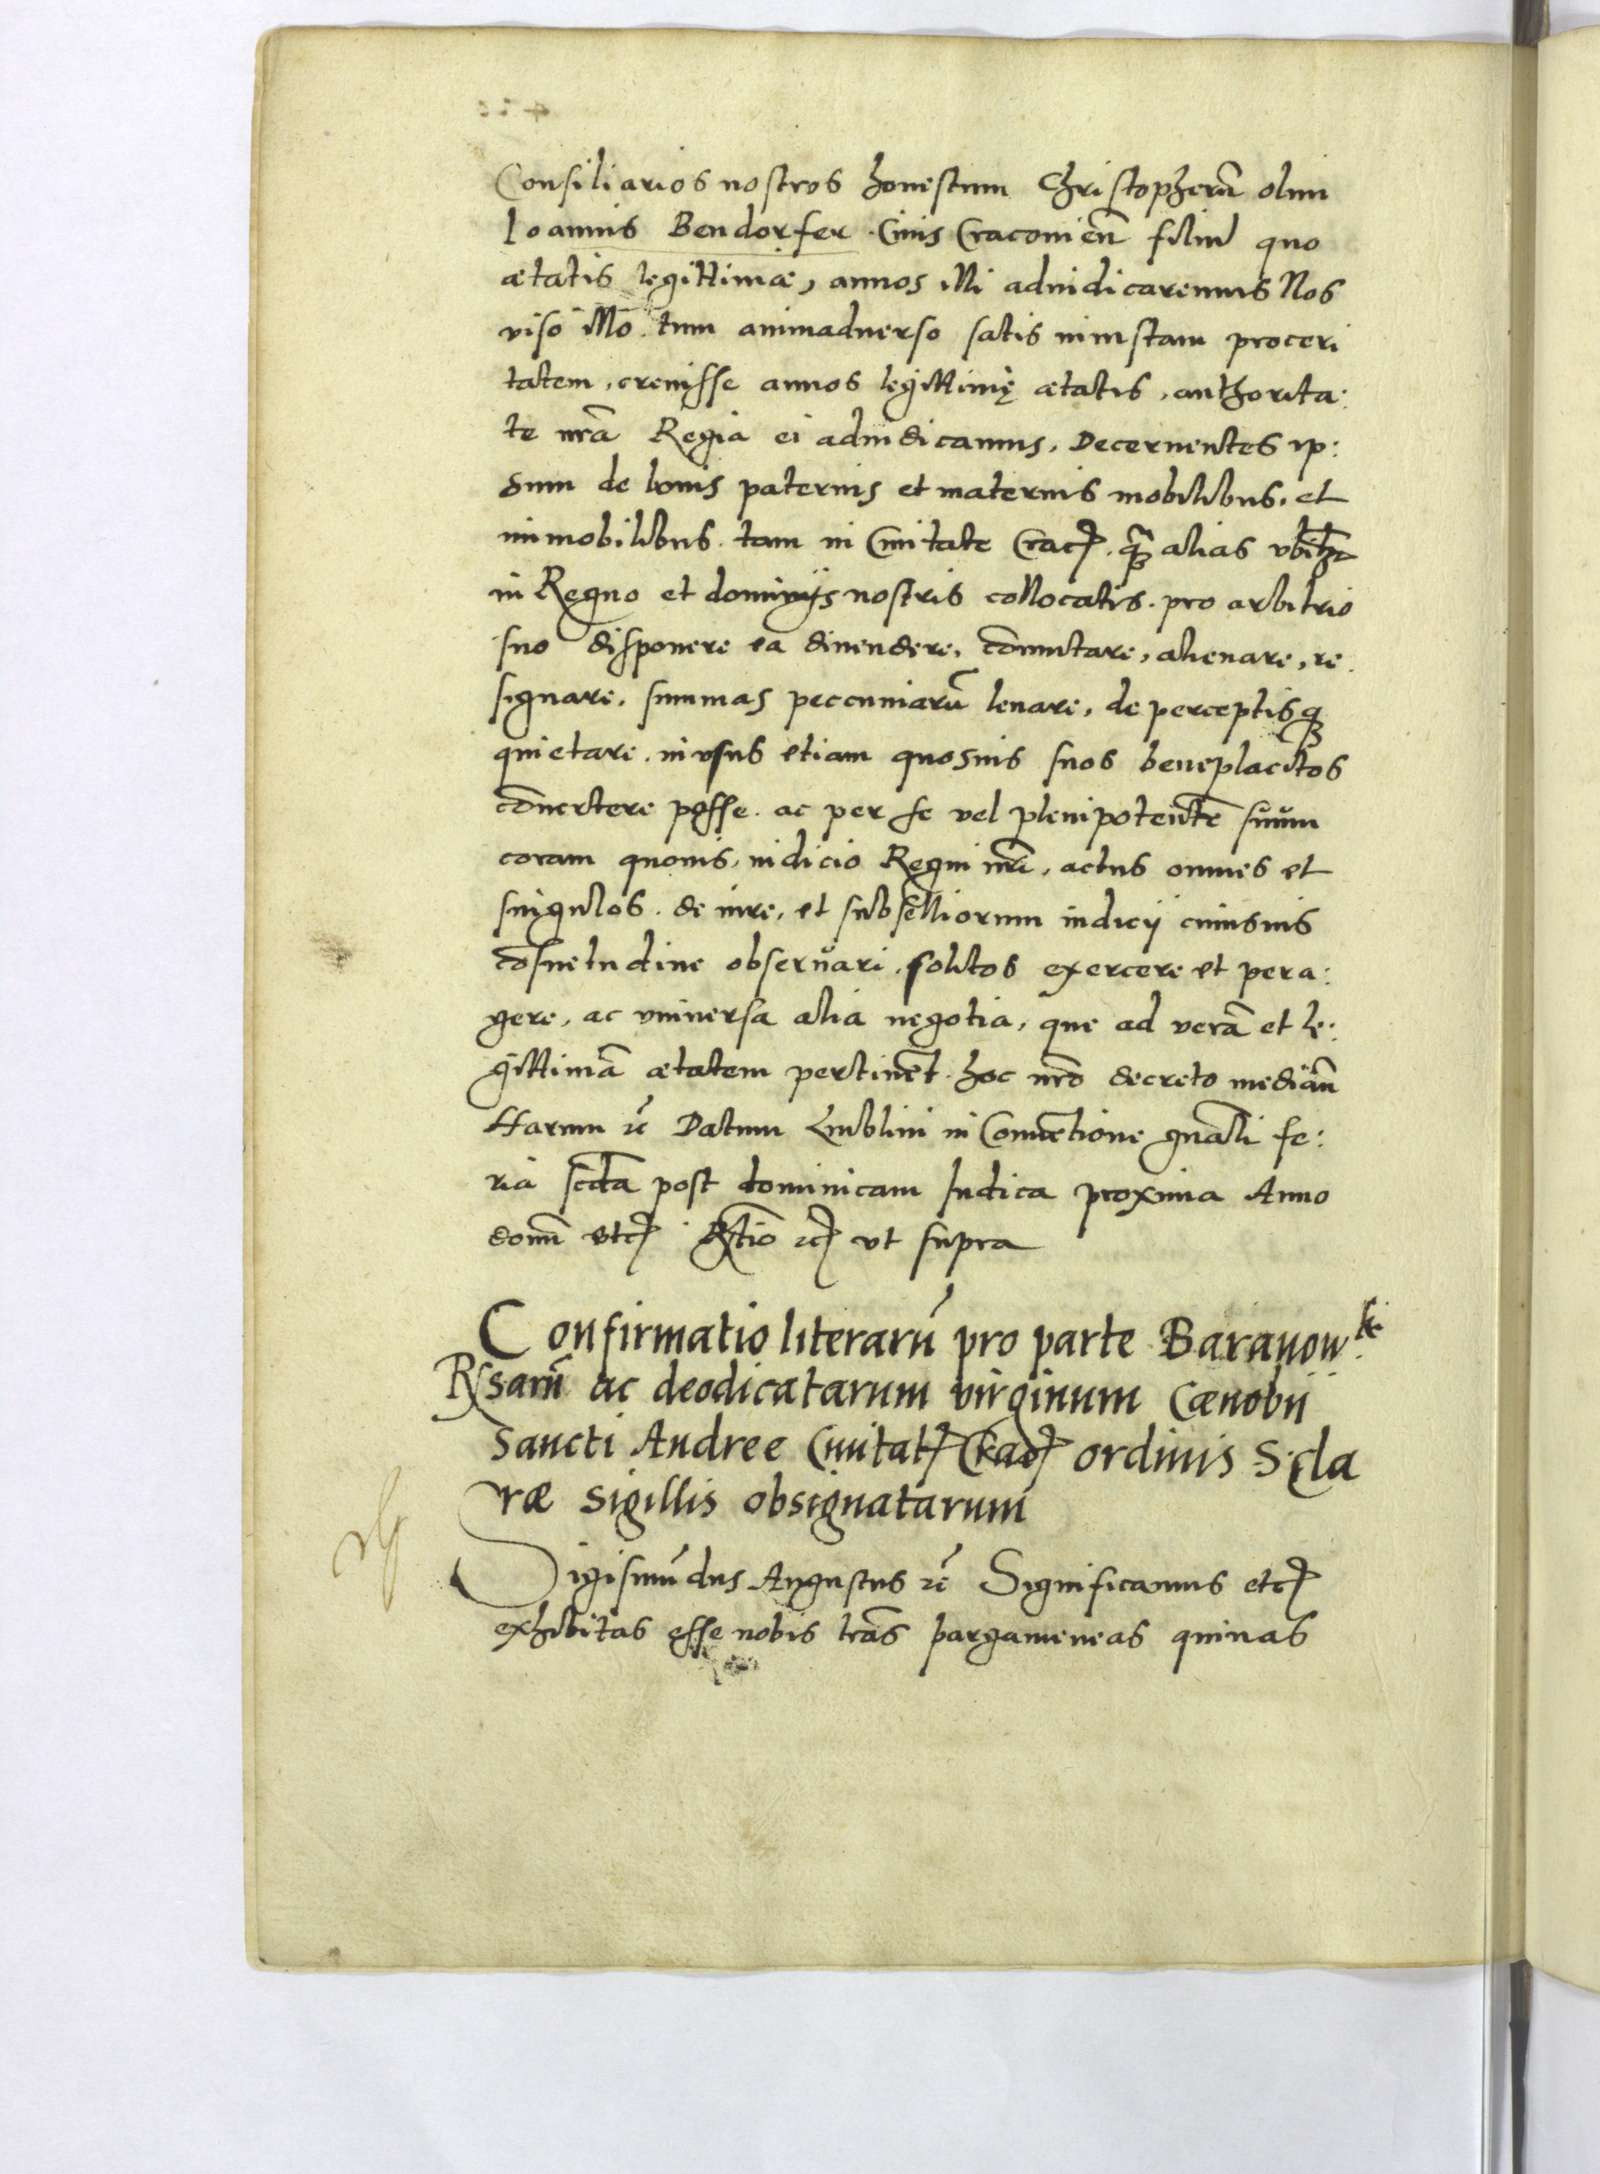 Consiliarios nostros honestum Christopherū olim
Ioannis Bendorfer Ciuis Cracouieñ filiū quo
ætatis legittimæ, annos illi adiudicaremus Nos
viso illo tum animaduerso satis iustam proceri
tatem, creuisse annos legittimę ætatis, authorita:
te nr̄a Regia ei adiudicamus, Decernentes ip:
sum de bonis paternis et maternis mobilibus, et
immobilibus tam in Ciuitate Crac. quā alias
in Regno et dominijs nostris collocatis. pro arbitrio
suo disponere ea diuendere, cōmutare, alienare, re
signare, summas peccuniarū leuare, de perceptisq
quietare, in vsus etiam quosuis suos beneplacitos
cōuertere posse. ac per se vel plenipotentē suum
coram quouis iudicio Regni nr̄i, actus omnes et
singulos de iure, et subselliorum iudicij cuiusuis
cōsuetudine obseruari solitos exercere et pera:
gere, ac vniuersa alia negotia, que ad verā et le:
gittimā ætatem pertinēt hoc nr̄o decreto mediañ
Harum rc̄ Datum Lublini in Conuētione gn̄ali fe:
ria sc̄da post dominicam Iudica proxima Anno
domī etc. Rtio rc. vt supra
Confirmatio literarū pro parte Baranowski
Rsarū ac deodicatarum virginum Cænobii
Sancti Andree Ciuitat. Crac. ordinis S. Cla
ræ sigillis obsignatarum
Sigismūdus Augustus rc̄ Significamus etc.
exhibitas esse nobis lr̄as pargameneas quinas